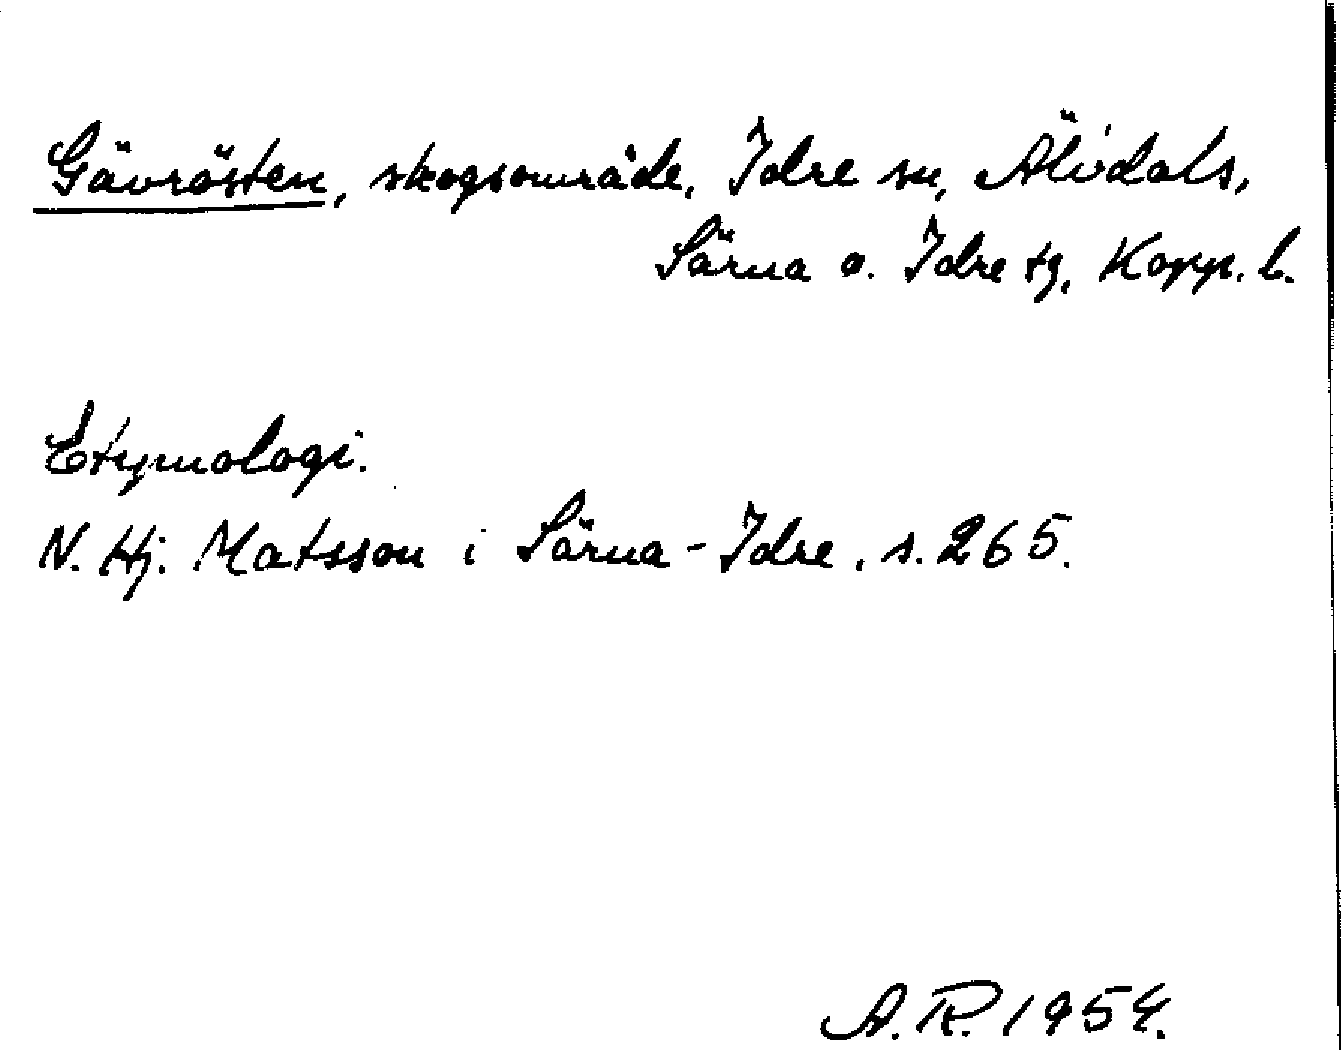 Gävrösten, skogsområde, Idre sn, Älvdals,
Särna o. Idre tg, Kopp. l.
Etymologi.
N. Hj. Matsson i Särna-Idre, s. 265.
A. R. 1954.